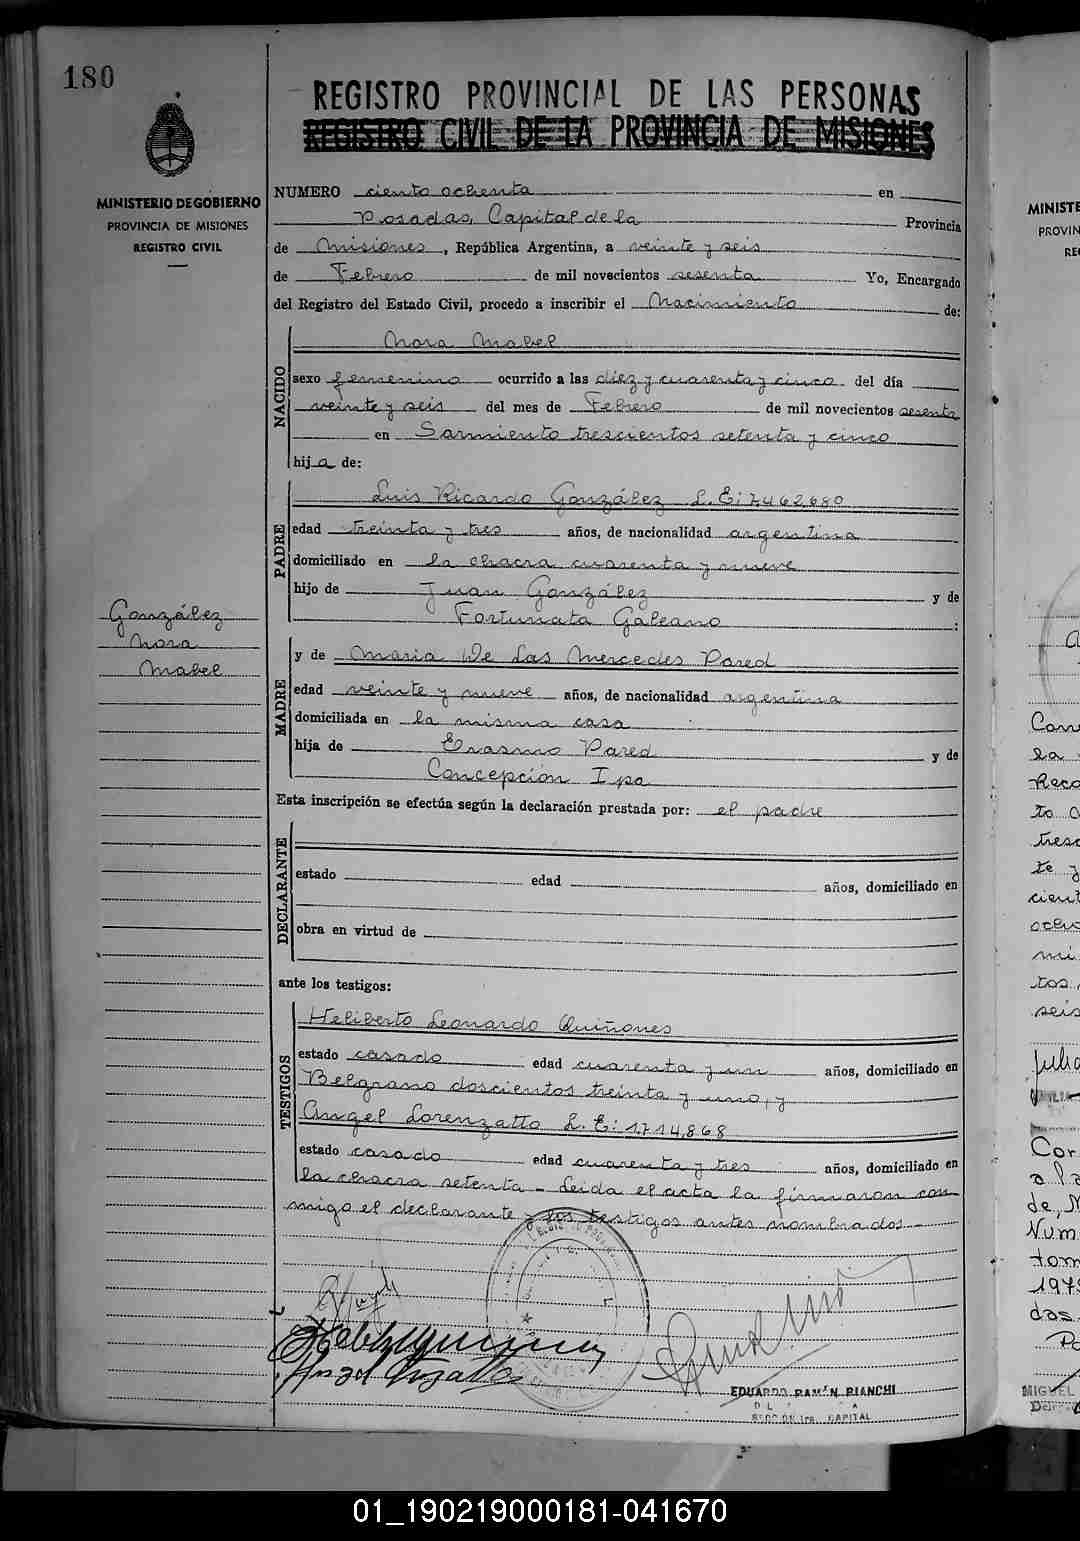 180
REGISTRO PROVINCIAL DE LAS PERSONAS
REGISTRO CIVIL DE LA PROVINCIA DE MISIONES
MINISTERIO DE GOBIERNO
PROVINCIA DE MISIONES
REGISTRO CIVIL
NUMERO ciento ochenta en
Posadas, Capital de la Provincia
de Misiones, República Argentina, a veinte y seis
de Febrero de mil novecientos sesenta Yo, Encargado
del Registro del Estado Civil, procedo a inscribir el Nacimiento de:
NACIDO
Nora Mabel
sexo femenino ocurrido a las diez y cuarenta y cinco del día
veinte y seis del mes de Febrero de mil novecientos sesenta
en Sarmiento trescientos setenta y cinco
hija de:
PADRE
Luis Ricardo González L.E: 7.462.680
edad treinta y tres años, de nacionalidad argentina
domiciliado en la chacra cuarenta y nueve
hijo de Juan González y de
Fortunata Galeano :
González
Nora
Mabel
MADRE
y de Maria De Las Mercedes Pared
edad veinte y nueve años, de nacionalidad argentina
domiciliada en la misma casa
hija de Erasmo Pared y de
Concepción Ipa
Esta inscripción se efectúa según la declaración prestada por: el padre
DECLARANTE
estado edad años, domiciliado en
obra en virtud de
ante los testigos:
TESTIGOS
Heliberto Leonardo Quiñones
estado casado edad cuarenta y un años, domiciliado en
Belgrano doscientos treinta y uno, y
Angel Lorenzatto L.E: 1.714.868
estado casado edad cuarenta y tres años, domiciliado en
la chacra setenta - Leida el acta la firmaron con
migo el declarante y los testigos antes nombrados
EDUARDO RAMÓN BIANCHI
CAPITAL
MINISTE
PROVIN
RE
la
Reco
to
tresc
te y
cient
ocho
mi
tos
seis
Julia
Cor
a la
de, N
Num
tom
197
das
MIGUEL
01_190219000181-041670